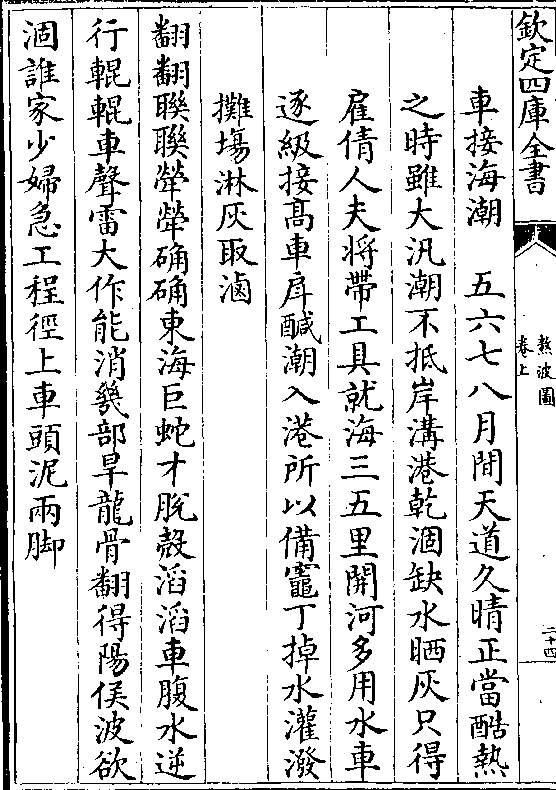 欽定四庫全書
熬波圖
卷上
二十四
車接海潮　五六七八月間天道久晴正當酷熱
之時雖大汛潮不抵岸溝港乾涸缺水晒灰只得
雇倩人夫将帶工具就海三五里開河多用水車
逐級接髙車戽醎潮入港所以備竈丁掉水灌潑
攤塲淋灰取滷
翻翻聯聯犖犖确确東海巨蛇才脫殼滔滔車腹水逆
行輥輥車聲雷大作能消幾部旱龍骨翻得陽侯波欲
涸誰家少婦急工程徑上車頭泥兩脚